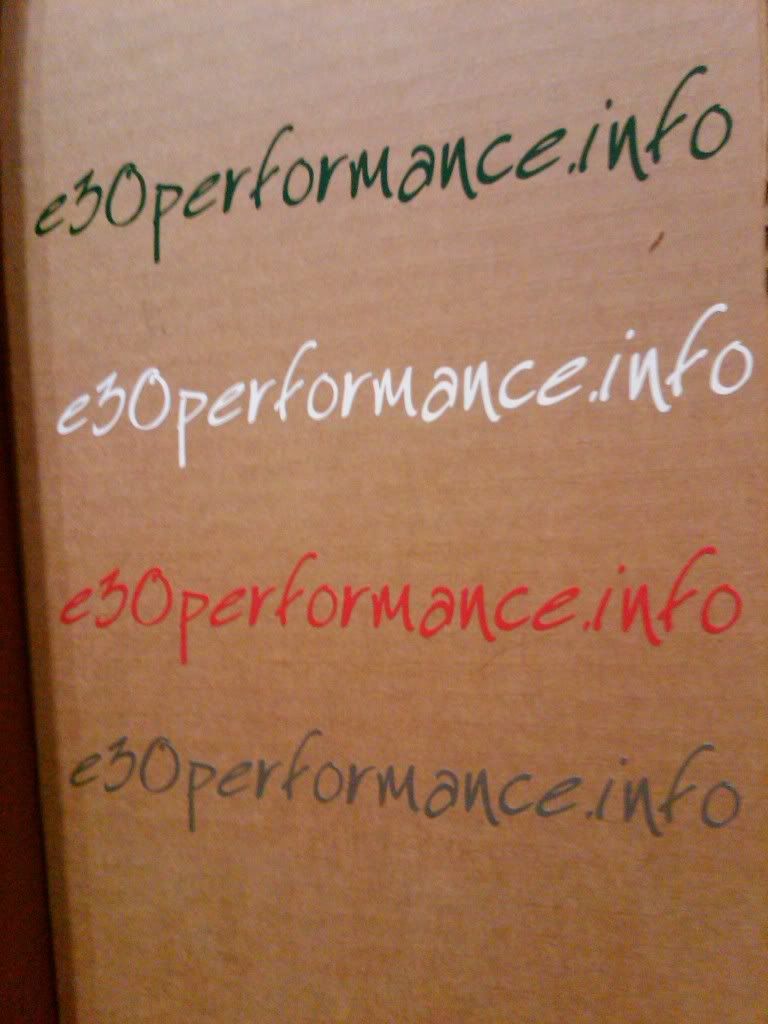 e30performance.info
e30performance.info
e30performance.info
e30performance.info